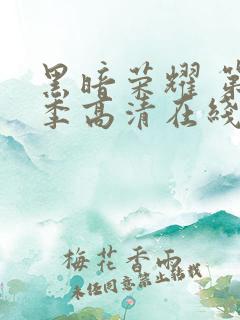 黑暗荣耀 第
季高清在线
梅花香雨
未经同意禁止转载